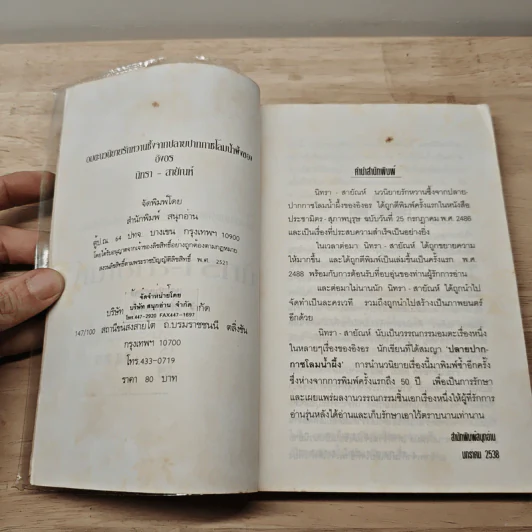 อมตะนวนิยายรักหวานซึ้งจากปลายปากกาชโลมน้ำผึ้งของ
อิงอร
นิทรา - สายัณห์
จัดพิมพ์โดย
สำนักพิมพ์ สนุกอ่าน
ตู้ปณ. 64 ปทจ. บางเขน กรุงเทพฯ 10900
โดยได้รับอนุญาตจากเจ้าของลิขสิทธิ์อย่างถูกต้องตามกฎหมาย
สงวนลิขสิทธิ์ตามพระราชบัญญัติลิขสิทธิ์ พ.ศ. 2521
จัดจำหน่ายโดย
บริษัท สนุกอ่าน จำกัด
โทร.447-2920 FAX447-1697
บริษัท กัด
147/100 สถานีขนส่งสายใต้ ถ.บรมราชชนนี ตลิ่งชัน
กรุงเทพฯ 10700
โทร.433-0719
ราคา 80 บาท
คำนำสำนักพิมพ์
นิทรา - สายัณห์ นวนิยายรักหวานซึ้งจากปลาย-
ปากกาชโลมน้ำผึ้งของอิงอร ได้ถูกตีพิมพ์ครั้งแรกในหนังสือ
ประชามิตร- สุภาพบุรุษ ฉบับวันที่ 25 กรกฎาคม พ.ศ. 2486
และเป็นเรื่องที่ประสบความสำเร็จเป็นอย่างยิ่ง
ในเวลาต่อมา นิทรา - สายัณห์ ได้ถูกขยายความ
ให้มากขึ้น และได้ถูกตีพิมพ์เป็นเล่มขึ้นเป็นครั้งแรก พ.ศ.
2488 พร้อมกับการต้อนรับที่อบอุ่นของท่านผู้รักการอ่าน
และต่อมาไม่นานนัก นิทรา - สายัณห์ ได้ถูกนำไป
จัดทำเป็นละครเวที รวมถึงถูกนำไปสร้างเป็นภาพยนตร์
อีกด้วย
นิทรา - สายัณห์ นับเป็นวรรณกรรมอมตะเรื่องหนึ่ง
ในหลายๆเรื่องของอิงอร นักเขียนที่ได้สมญา "ปลายปาก-
กาชโลมน้ำผึ้ง" การนำนวนิยายเรื่องนี้มาพิมพ์ซ้ำอีกครั้ง
ซึ่งห่างจากการพิมพ์ครั้งแรกถึง 50 ปี เพื่อเป็นการรักษา
และเผยแพร่ผลงานวรรณกรรมชิ้นเอกเรื่องหนึ่งให้ผู้ที่รักการ
อ่านรุ่นหลังได้อ่านและเก็บรักษาเอาไว้ตราบนานเท่านาน
สำนักพิมพ์สนุกอ่าน
มกราคม 2538